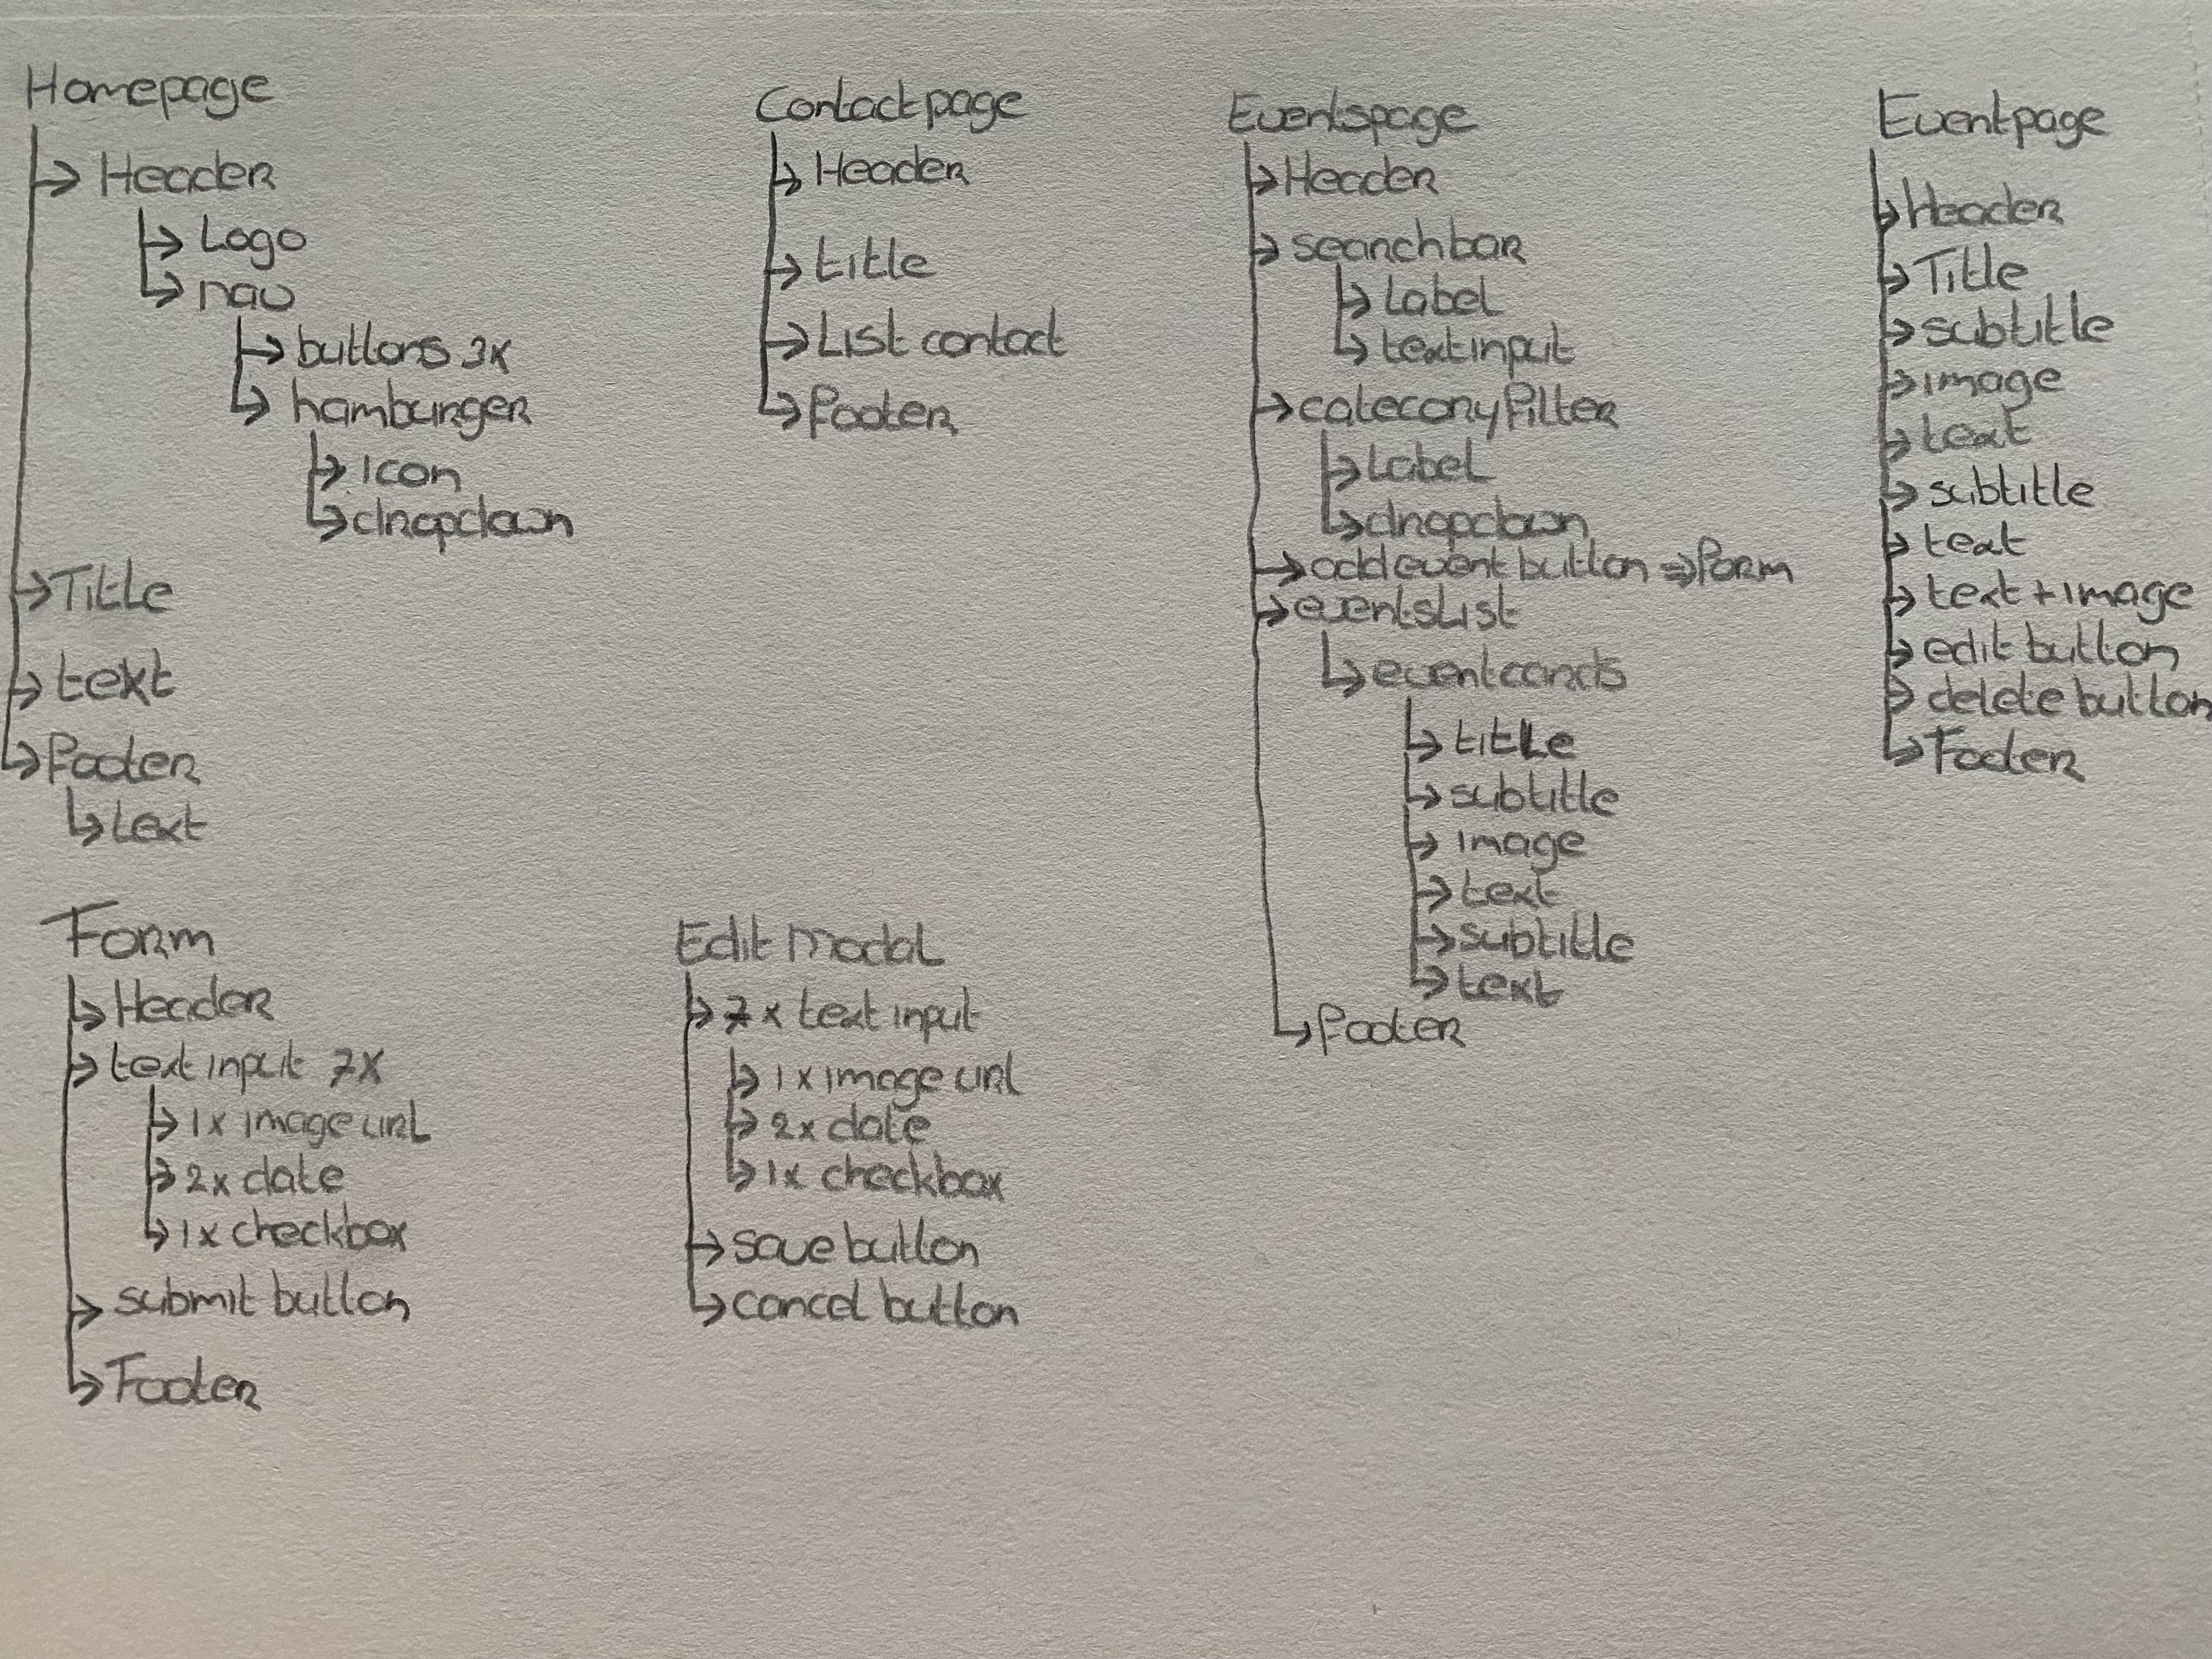 Homepage
Header
Logo
nav
buttons 3x
hamburger
icon
dropdown
Title
text
footer
text
Contactpage
Header
title
List contact
footer
Eventspage
Header
searchbar
Label
textinput
catecoryfilter
Label
dropdown
add event button ⇒ form
eventsList
eventcards
title
subtitle
image
text
subtitle
text
footer
Eventpage
Header
Title
subtitle
image
text
subtitle
text
text + image
edit button
delete button
Footer
Form
Header
text input 7x
1x image url
2x date
1x checkbox
submit button
Footer
Edit modal
7x text input
1x image url
2x date
1x checkbox
save button
cancel button